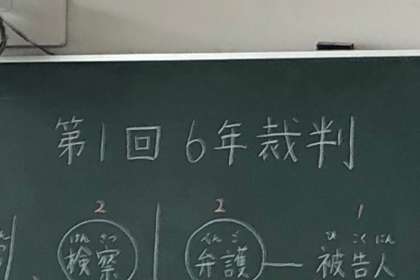 第1回 6年裁判
2 2 1
けん さつ べん ご ひ こく にん
検察 弁護 被告人